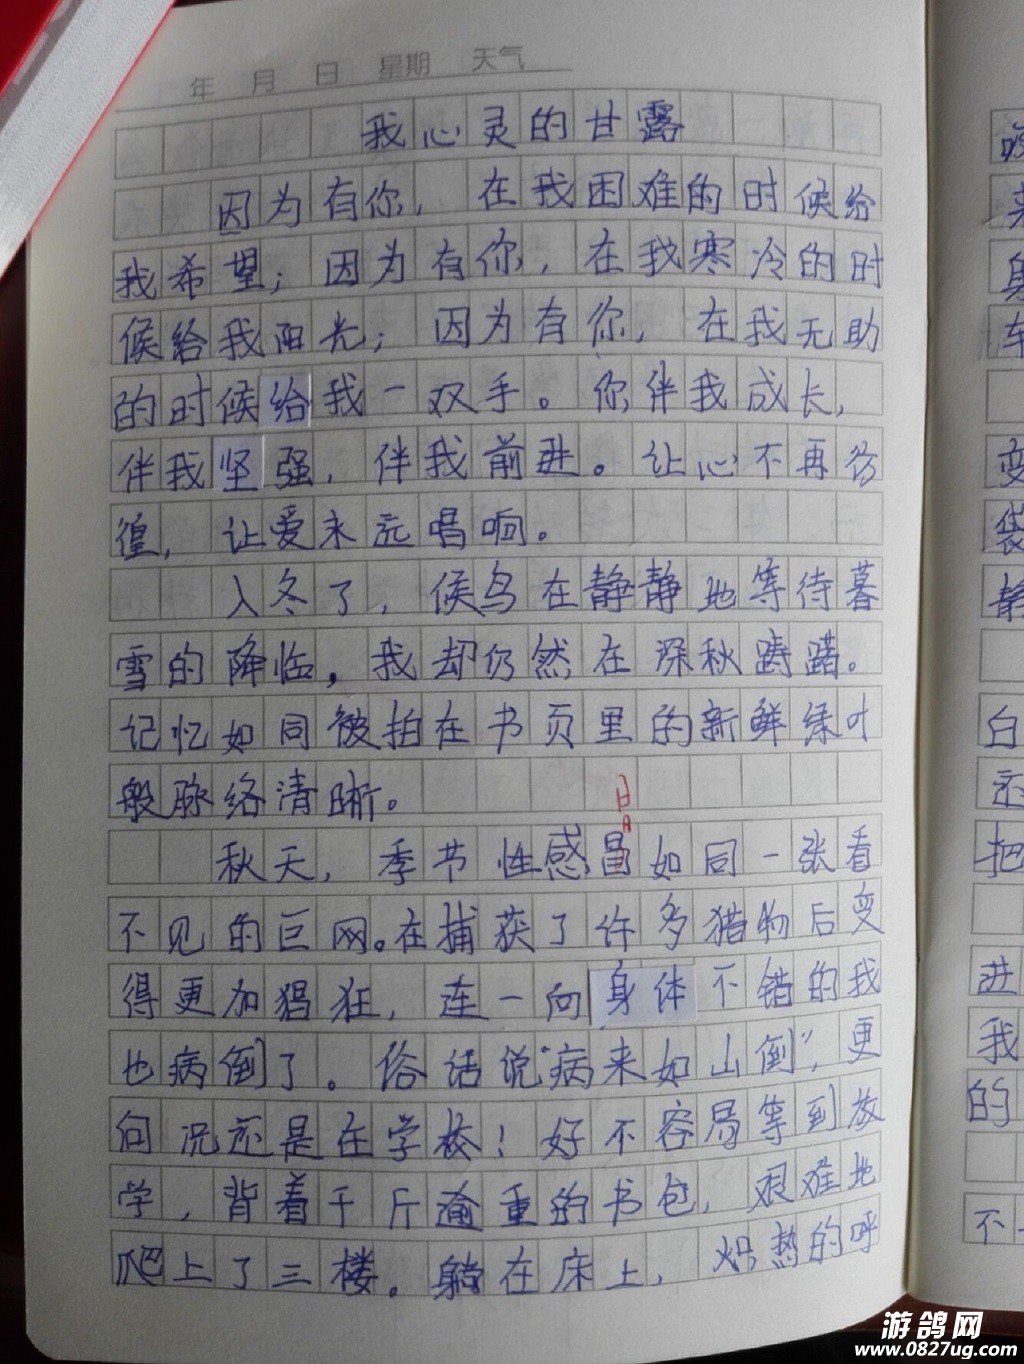 年 月 日 星期 天气
我心灵的甘露
因为有你，在我困难的时候给
我希望；因为有你，在我寒冷的时
候给我阳光；因为有你，在我无助
的时候给我一双手。你伴我成长，
伴我坚强，伴我前进。让心不再彷
徨，让爱永远唱响。
入冬了，候鸟在静静地等待暮
雪的降临，我却仍然在深秋踌躇。
记忆如同被拍在书页里的新鲜绿叶
般脉络清晰。
秋天，季节性感冒如同一张看
不见的巨网。在捕获了许多猎物后变
得更加猖狂，连一向身体不错的我
也病倒了。俗话说"病来如山倒"，更
何况还是在学校！好不容易等到放
学，背着千斤重的书包，艰难地
爬上了三楼。躺在床上，炽热的呼
变
袋
静
白
还
把
进
我
的
不
游鸽网
www.0827ug.com